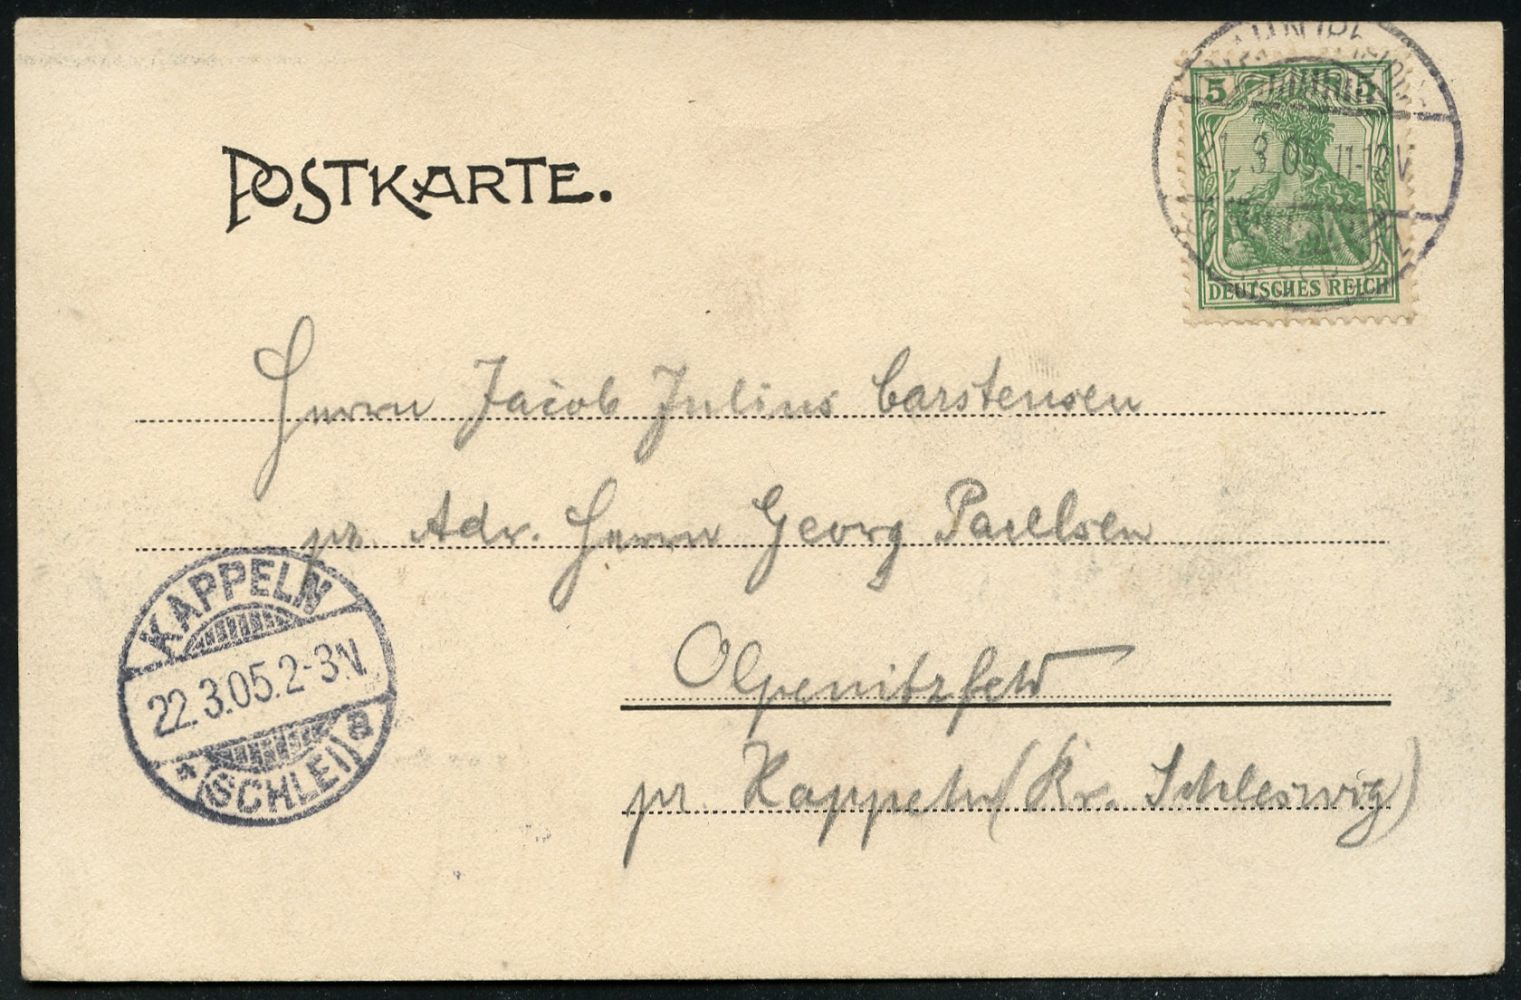 POSTKARTE.
5 5
3.05. 11-12V.
DEUTSCHES REICH
Herrn Jacob Julius Carstensen
pr. Adr. Herrn Georg Paulsen
Olpenitzfeld
pr. Kappeln (Kr. Schleswig)
KAPPELN
22.3.05.2-3V.
* (SCHLEI) a